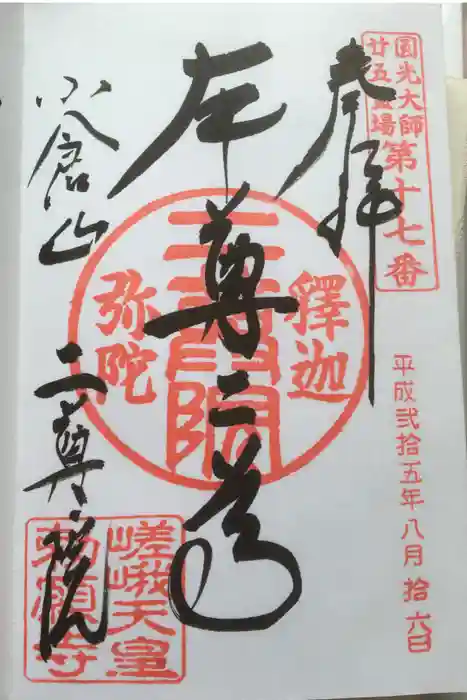 圓光大師
廿五霊場
第十七番
奉拝
平成弐拾五年八月拾六日
本尊二尊
釋迦
弥陀
二尊院
小倉山
二尊院
嵯峨天皇
勅願寺